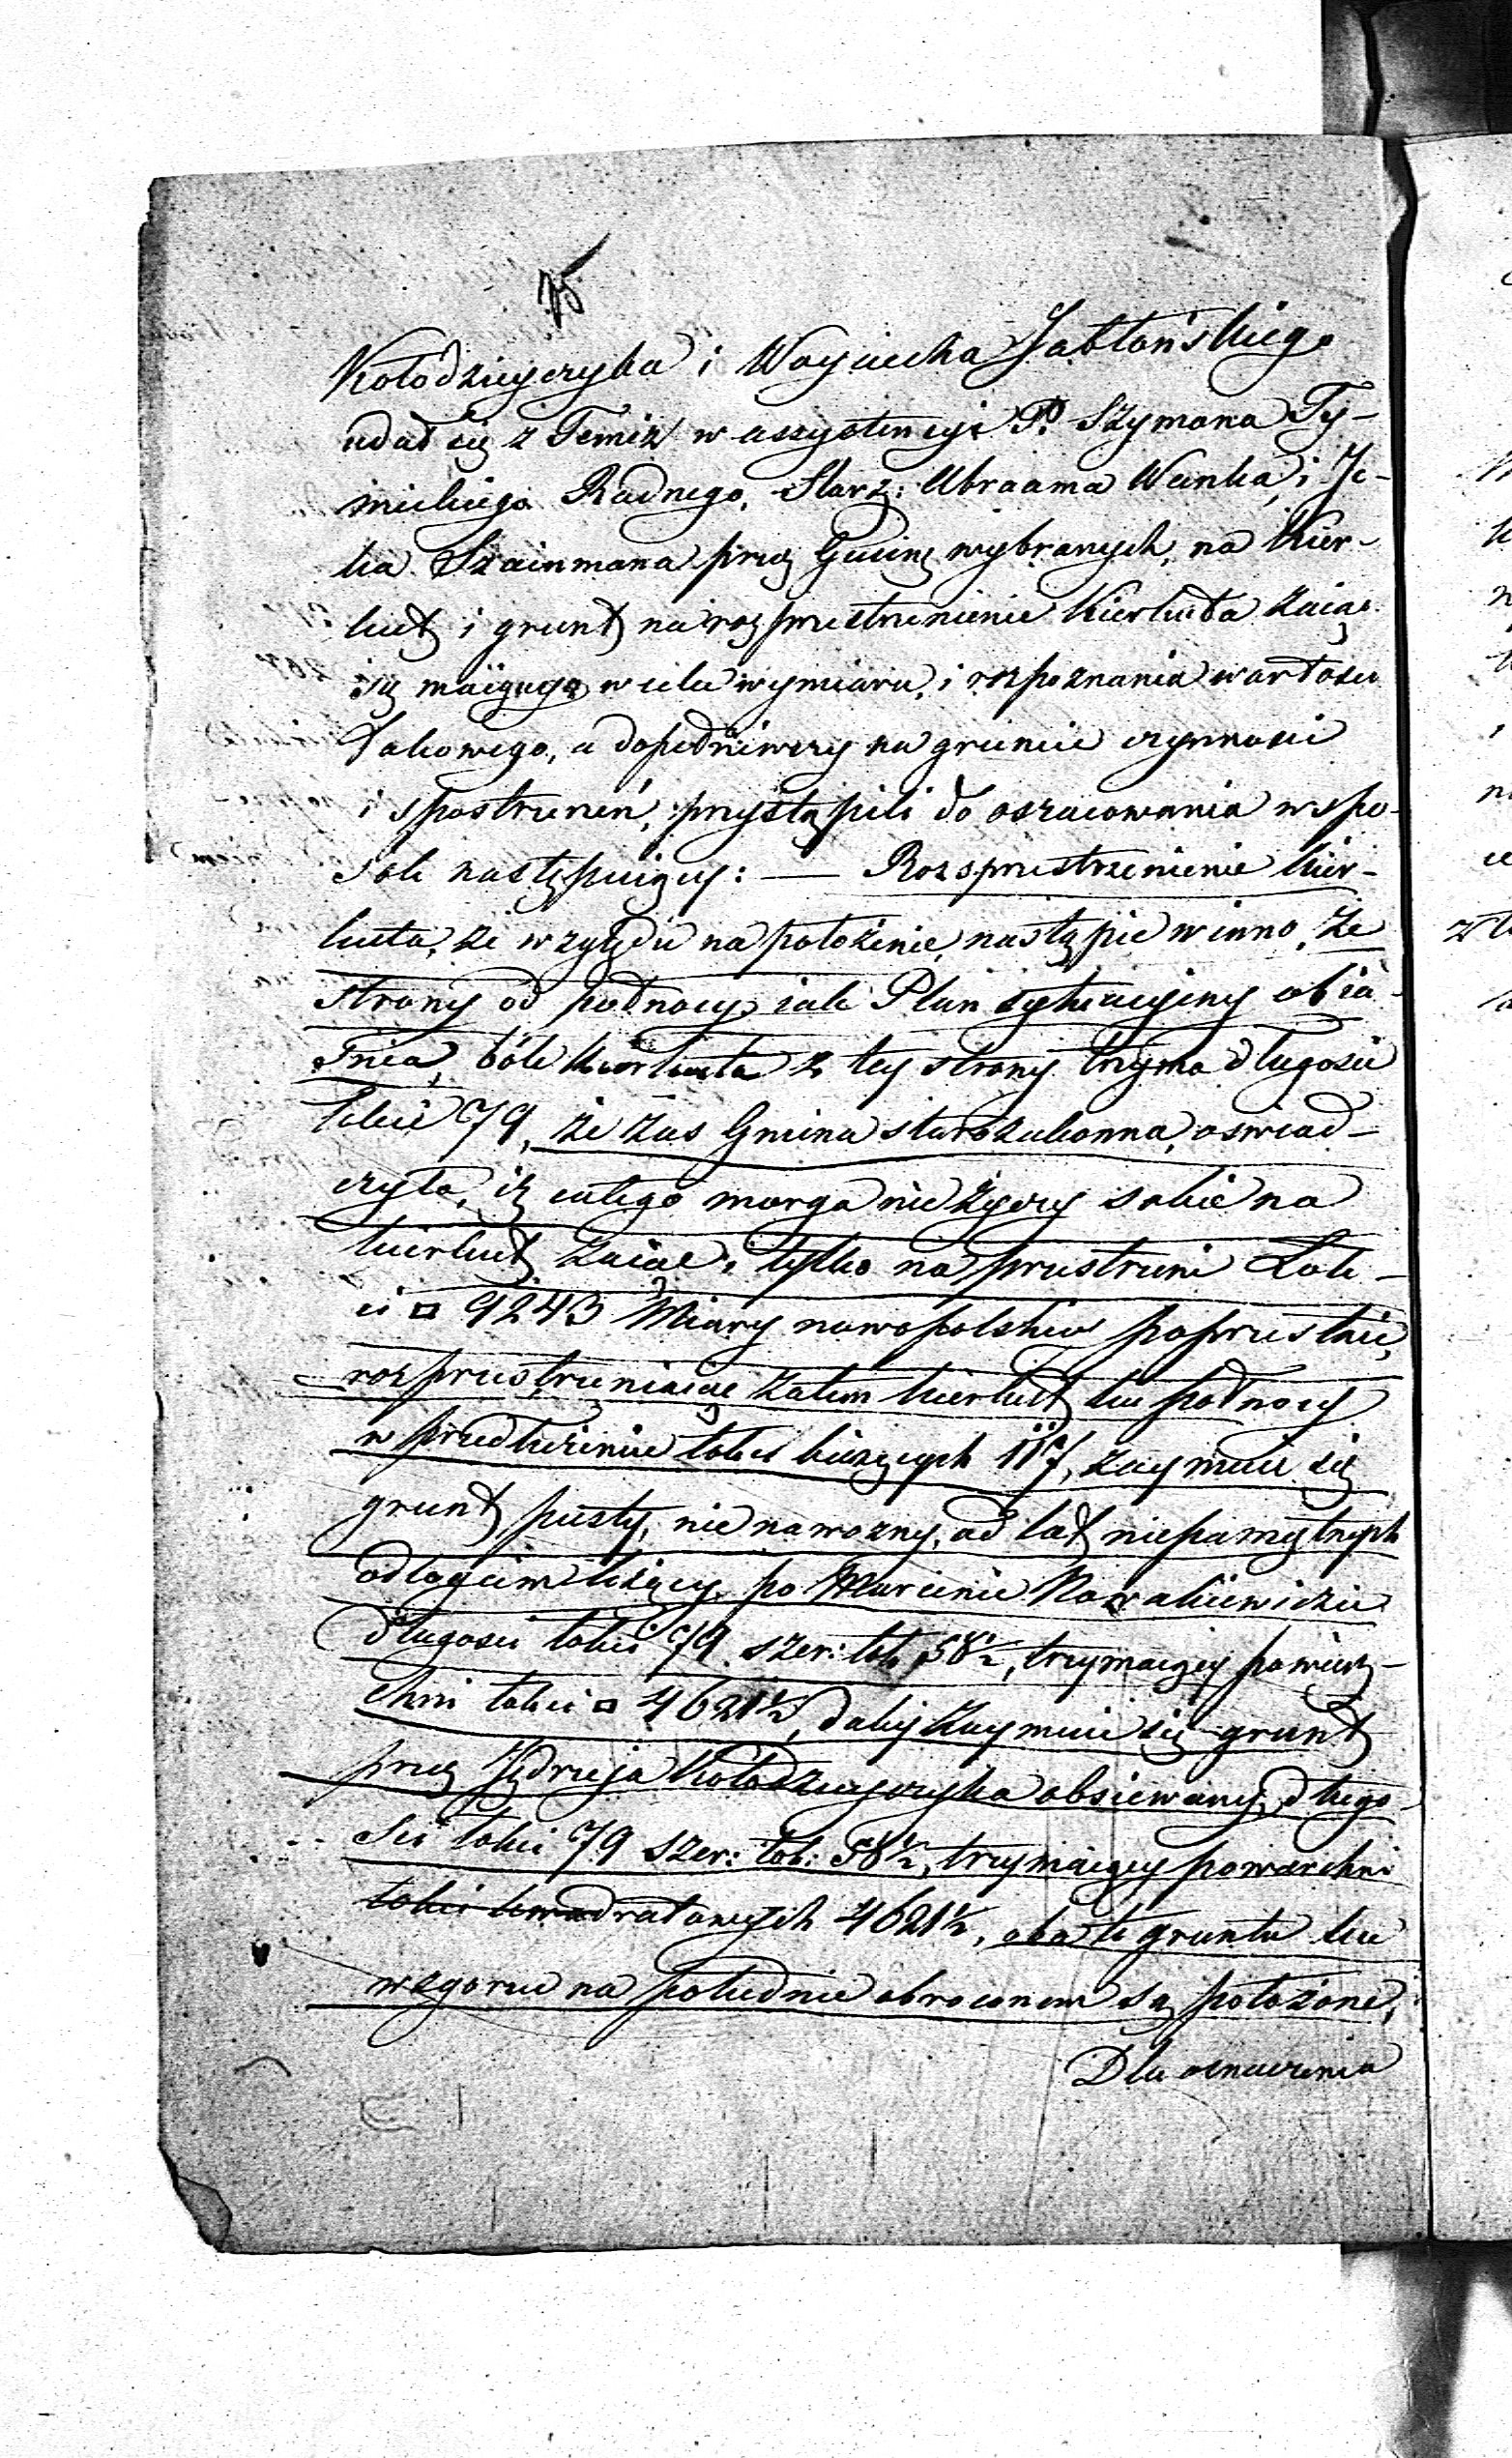 Kołodzieyczyka i Woyciecha Jabłońskiego
udał się z Temiż w assystencyi P. Szymona Ty-
mickiego Radnego, Starz: Abraama Wanka, i Je-
ka Szainmana przez Gminę wybranych, na Kier-
kut i grunt na rozprzestrzenienie Kierkuta zaiąć
się maiącego w celu wymiaru, i rozpoznania wartości
takowego, a dopełniwszy na gruncie czynności
i spostrzeżeń, przystąpili do oszacowania w spo-
sob następuiący: — Rozsprzestrzenienie Kier-
kuta, ze względu na położenie, nastąpić winno, ze
strony od północy, iak Plan sytuacyiny obia-
śnia, bók Kierkuta z tey strony trzyma długości
łokci 79, że zaś Gmina starozakonna, oswiad-
czyła, iż całego morga nie życzy sobie na
kierkut zaiąć, i tylko na przestrzeni Łok-
ci □ 9243 Miary nowopolskiey poprzestaie,
rozprzestrzeniaiąc zatem kierkut ku północy
w przedłużeniu łokci bieżących 117, zaymuie się
grunt pusty, nie nawozny, od lat niepamiętnych
odłogiem leżący, po Marcinie Nowakiewiczu
długości łokci 79. szer: łok 58½, trzymaiący powierz-
chni łokci □ 4621½, daley zaymuie się grunt
przez Jędrzeja Kołodzieyczyka obsiewany, długo-
ści łokci 79 szer: łok: 58½, trzymaiący powierzchni
łokci kwadratowych 4621½, oba te grunta ku
wzgorzu na południe obroconem są położone,
Dla oznaczenia